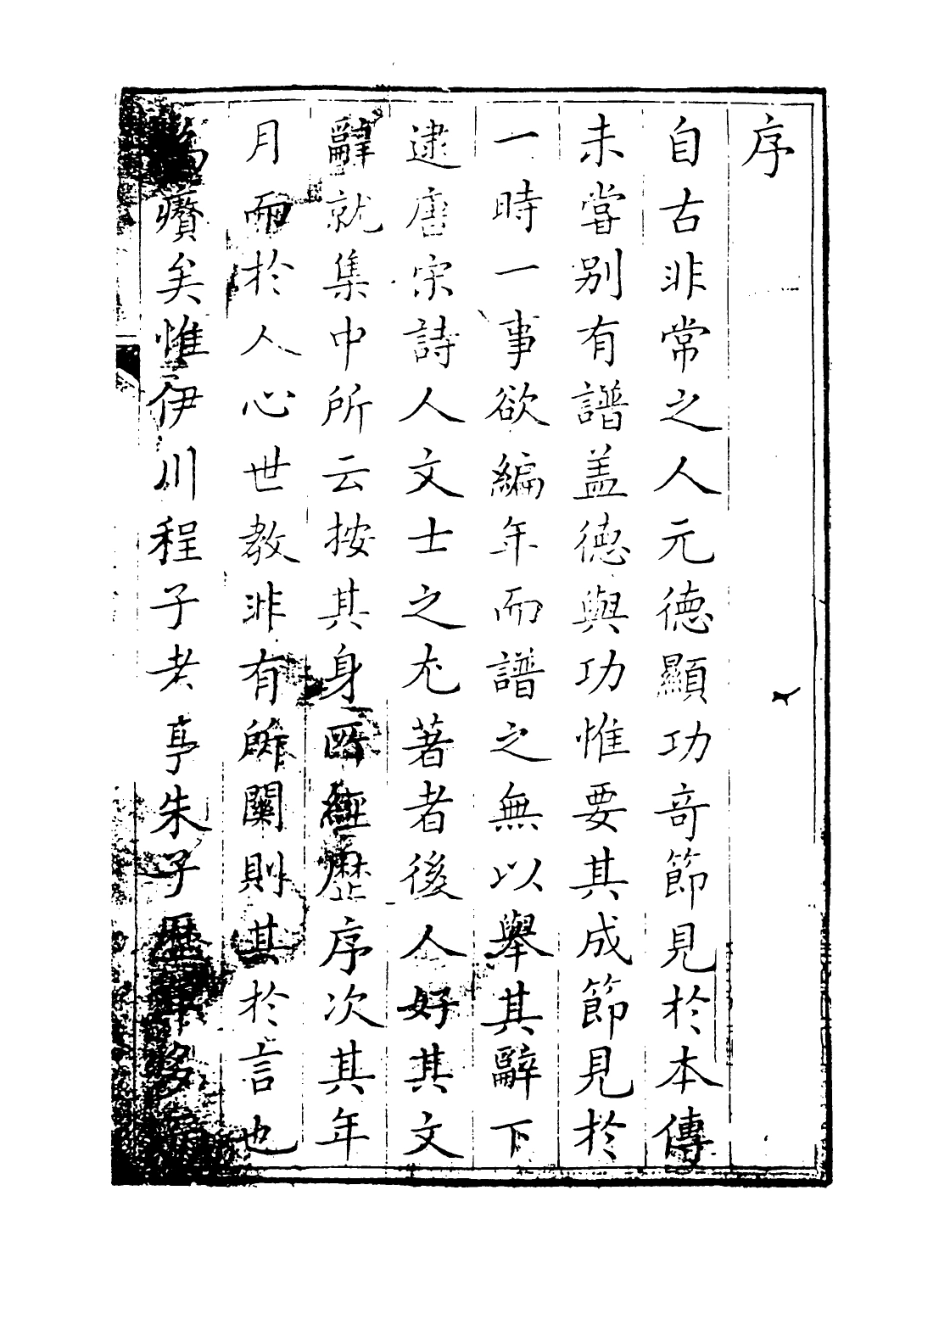 序
自古非常之人元德顯功竒節見於本傳
未嘗别有譜盖德與功惟要其成節見於
一時一事欲編年而譜之無以舉其辭下
逮唐宋詩人文士之尤著者後人好其文
辭就集中所云按其身所經歷序次其年
月而於人心世教非有所關則其於言也
爲贅矣惟伊川程子考亭朱子歷年多